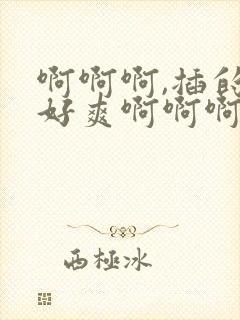 啊啊啊,插的
好爽啊啊啊
西極冰